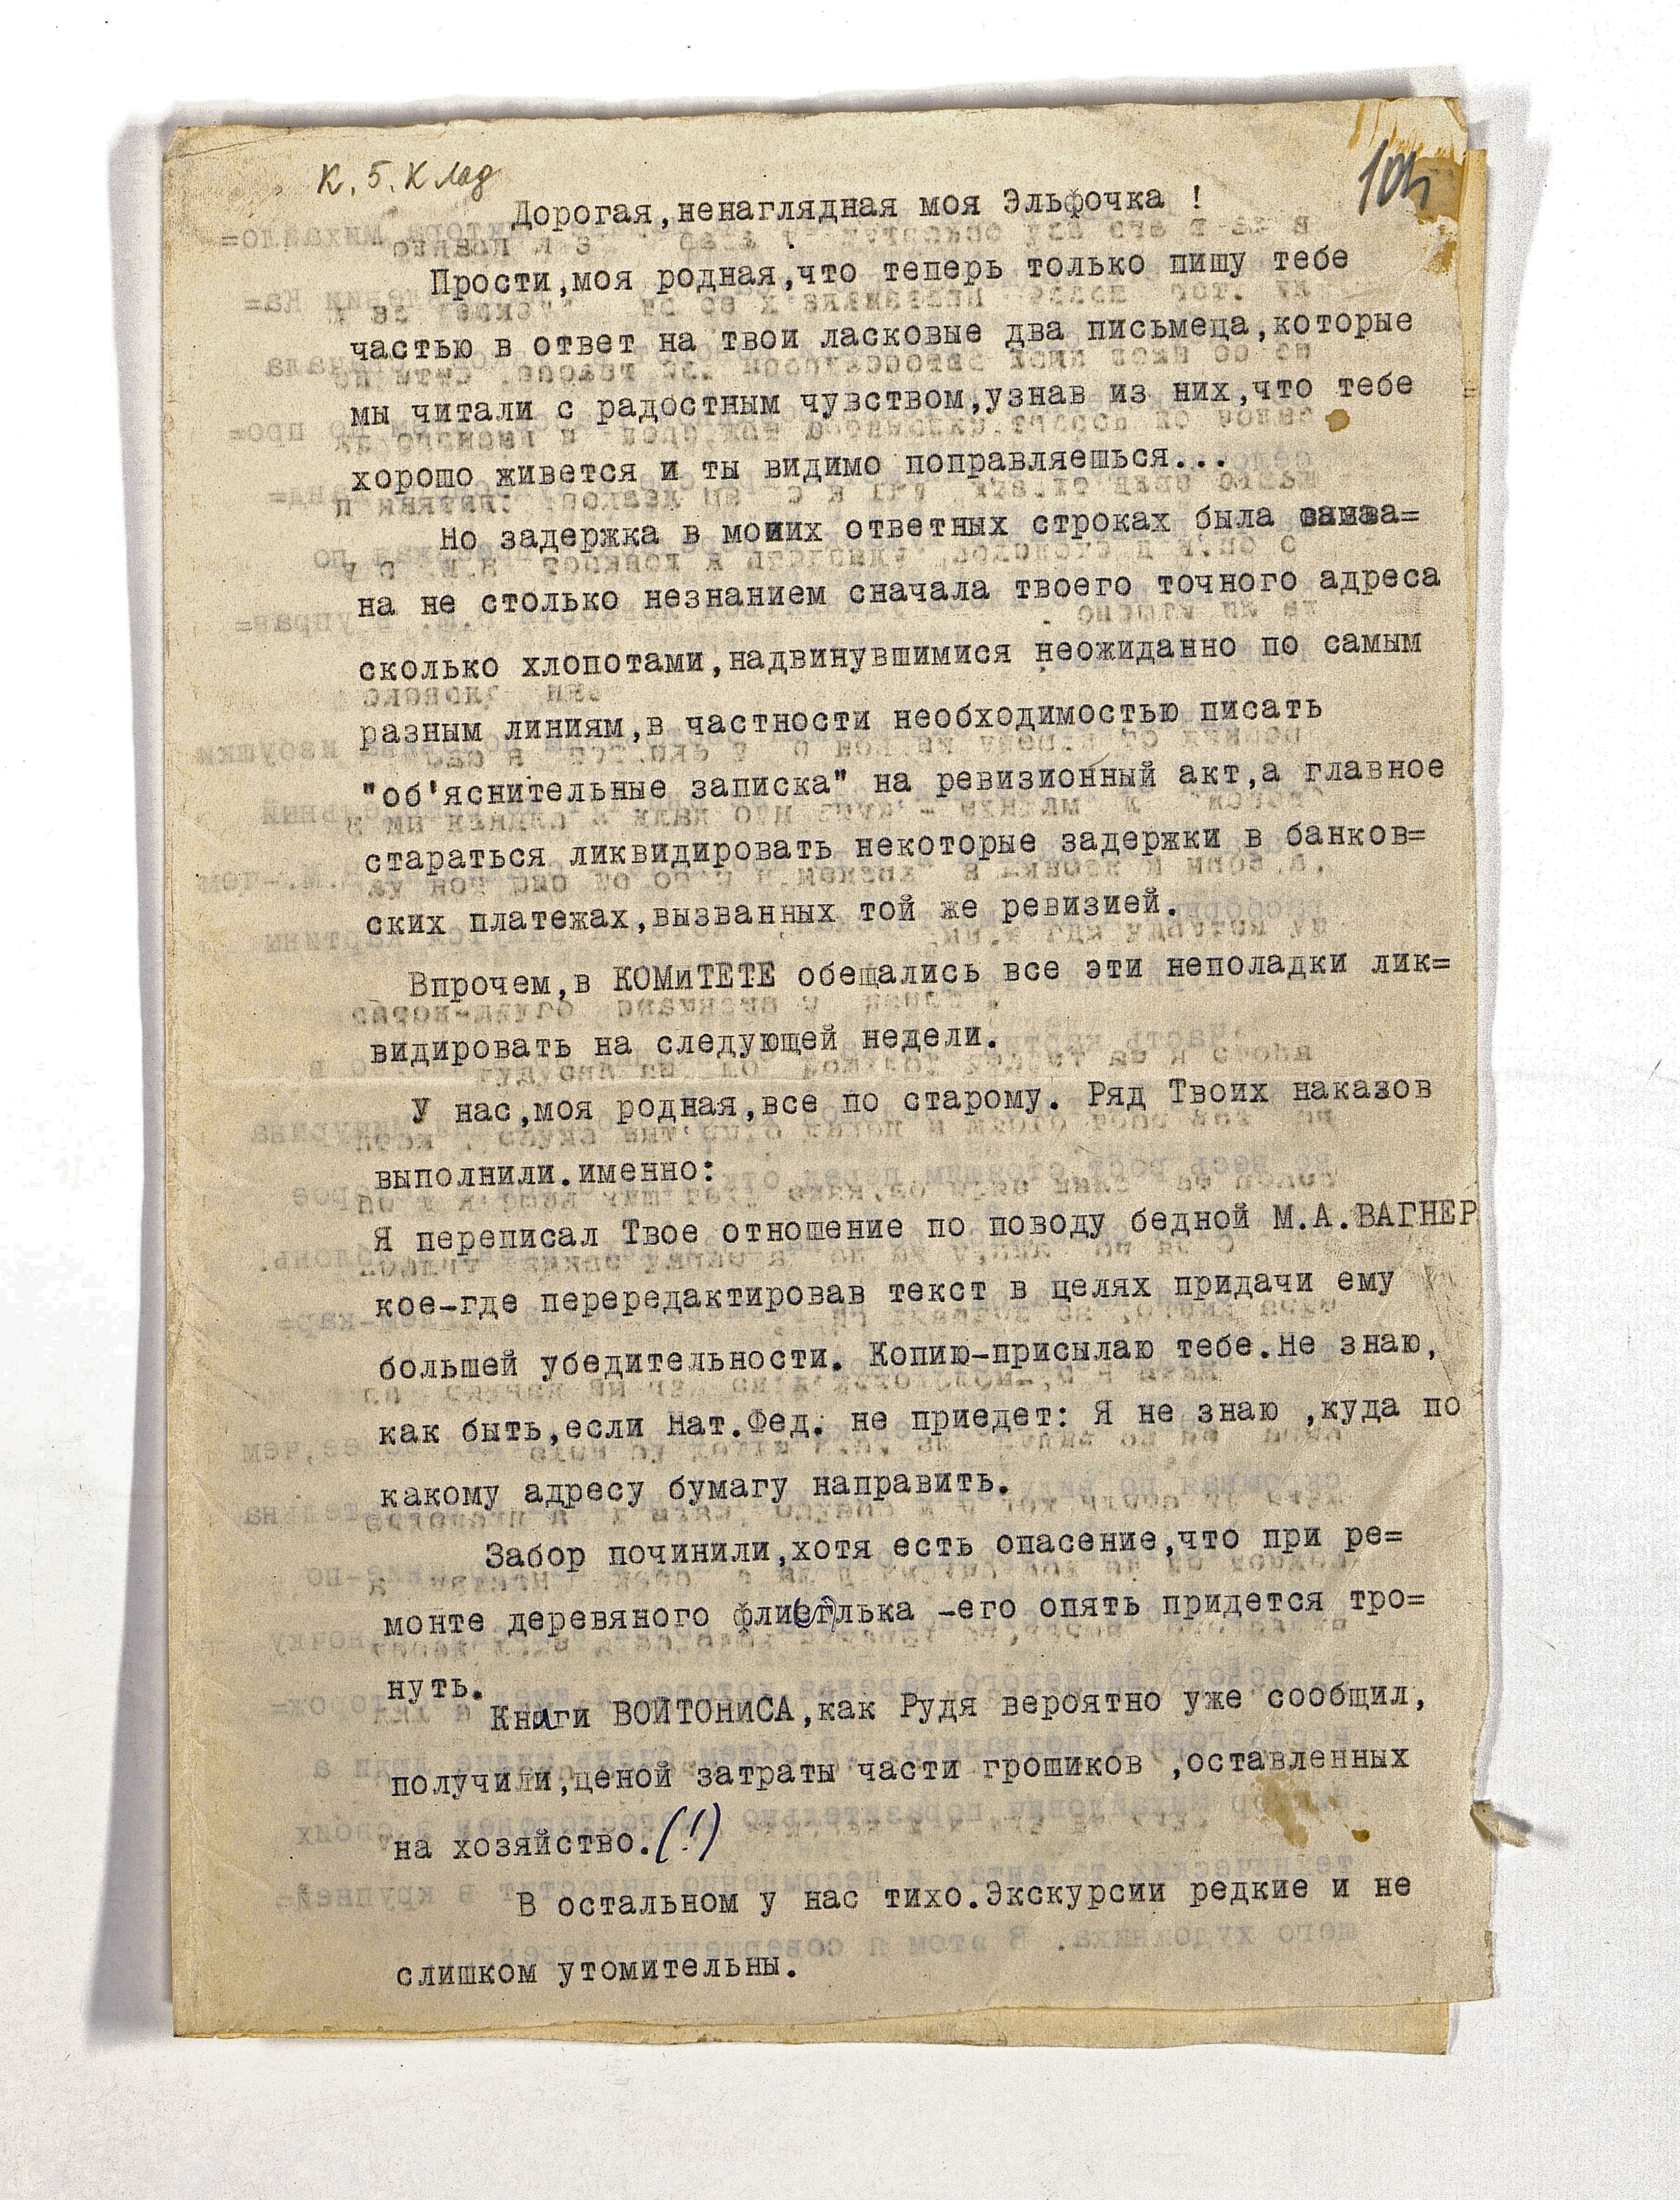 К. 5. К Лад
104
Дорогая,ненаглядная моя Эльфочка !
Прости,моя родная,что теперь только пишу тебе
частью в ответ на твои ласковые два письмеца,которые
мы читали с радостным чувством,узнав из них,что тебе
хорошо живется и ты видимо поправляешься...
Но задержка в моиих ответных строках была
на не столько незнанием сначала твоего точного адреса
сколько хлопотами,надвинувшимися неожиданно по самым
разным линиям,в частности необходимостью писать
"об'яснительные записка" на ревизионный акт,а главное
стараться ликвидировать некоторые задержки в банков=
ских платежах,вызванных той же ревизией.
Впрочем,в КОМиТЕТЕ обещались все эти неполадки лик=
видировать на следующей недели.
У нас,моя родная,все по старому. Ряд Твоих наказов
выполнили.именно:
Я переписал Твое отношение по поводу бедной М.А.ВАГНЕР
кое-где перередактировав текст в целях придачи ему
большей убедительности. Копию-присылаю тебе.Не знаю,
как быть,если Нат.Фед. не приедет: Я не знаю ,куда по
какому адресу бумагу направить.
Забор починили,хотя есть опасение,что при ре=
монте деревяного -его опять придется тро=
нуть.
Книги ВОЙТОНиСА,как Рудя вероятно уже сообщил,
получили,ценой затраты части грошиков ,оставленных
на хозяйство.(!)
В остальном у нас тихо.Экскурсии редкие и не
слишком утомительны.